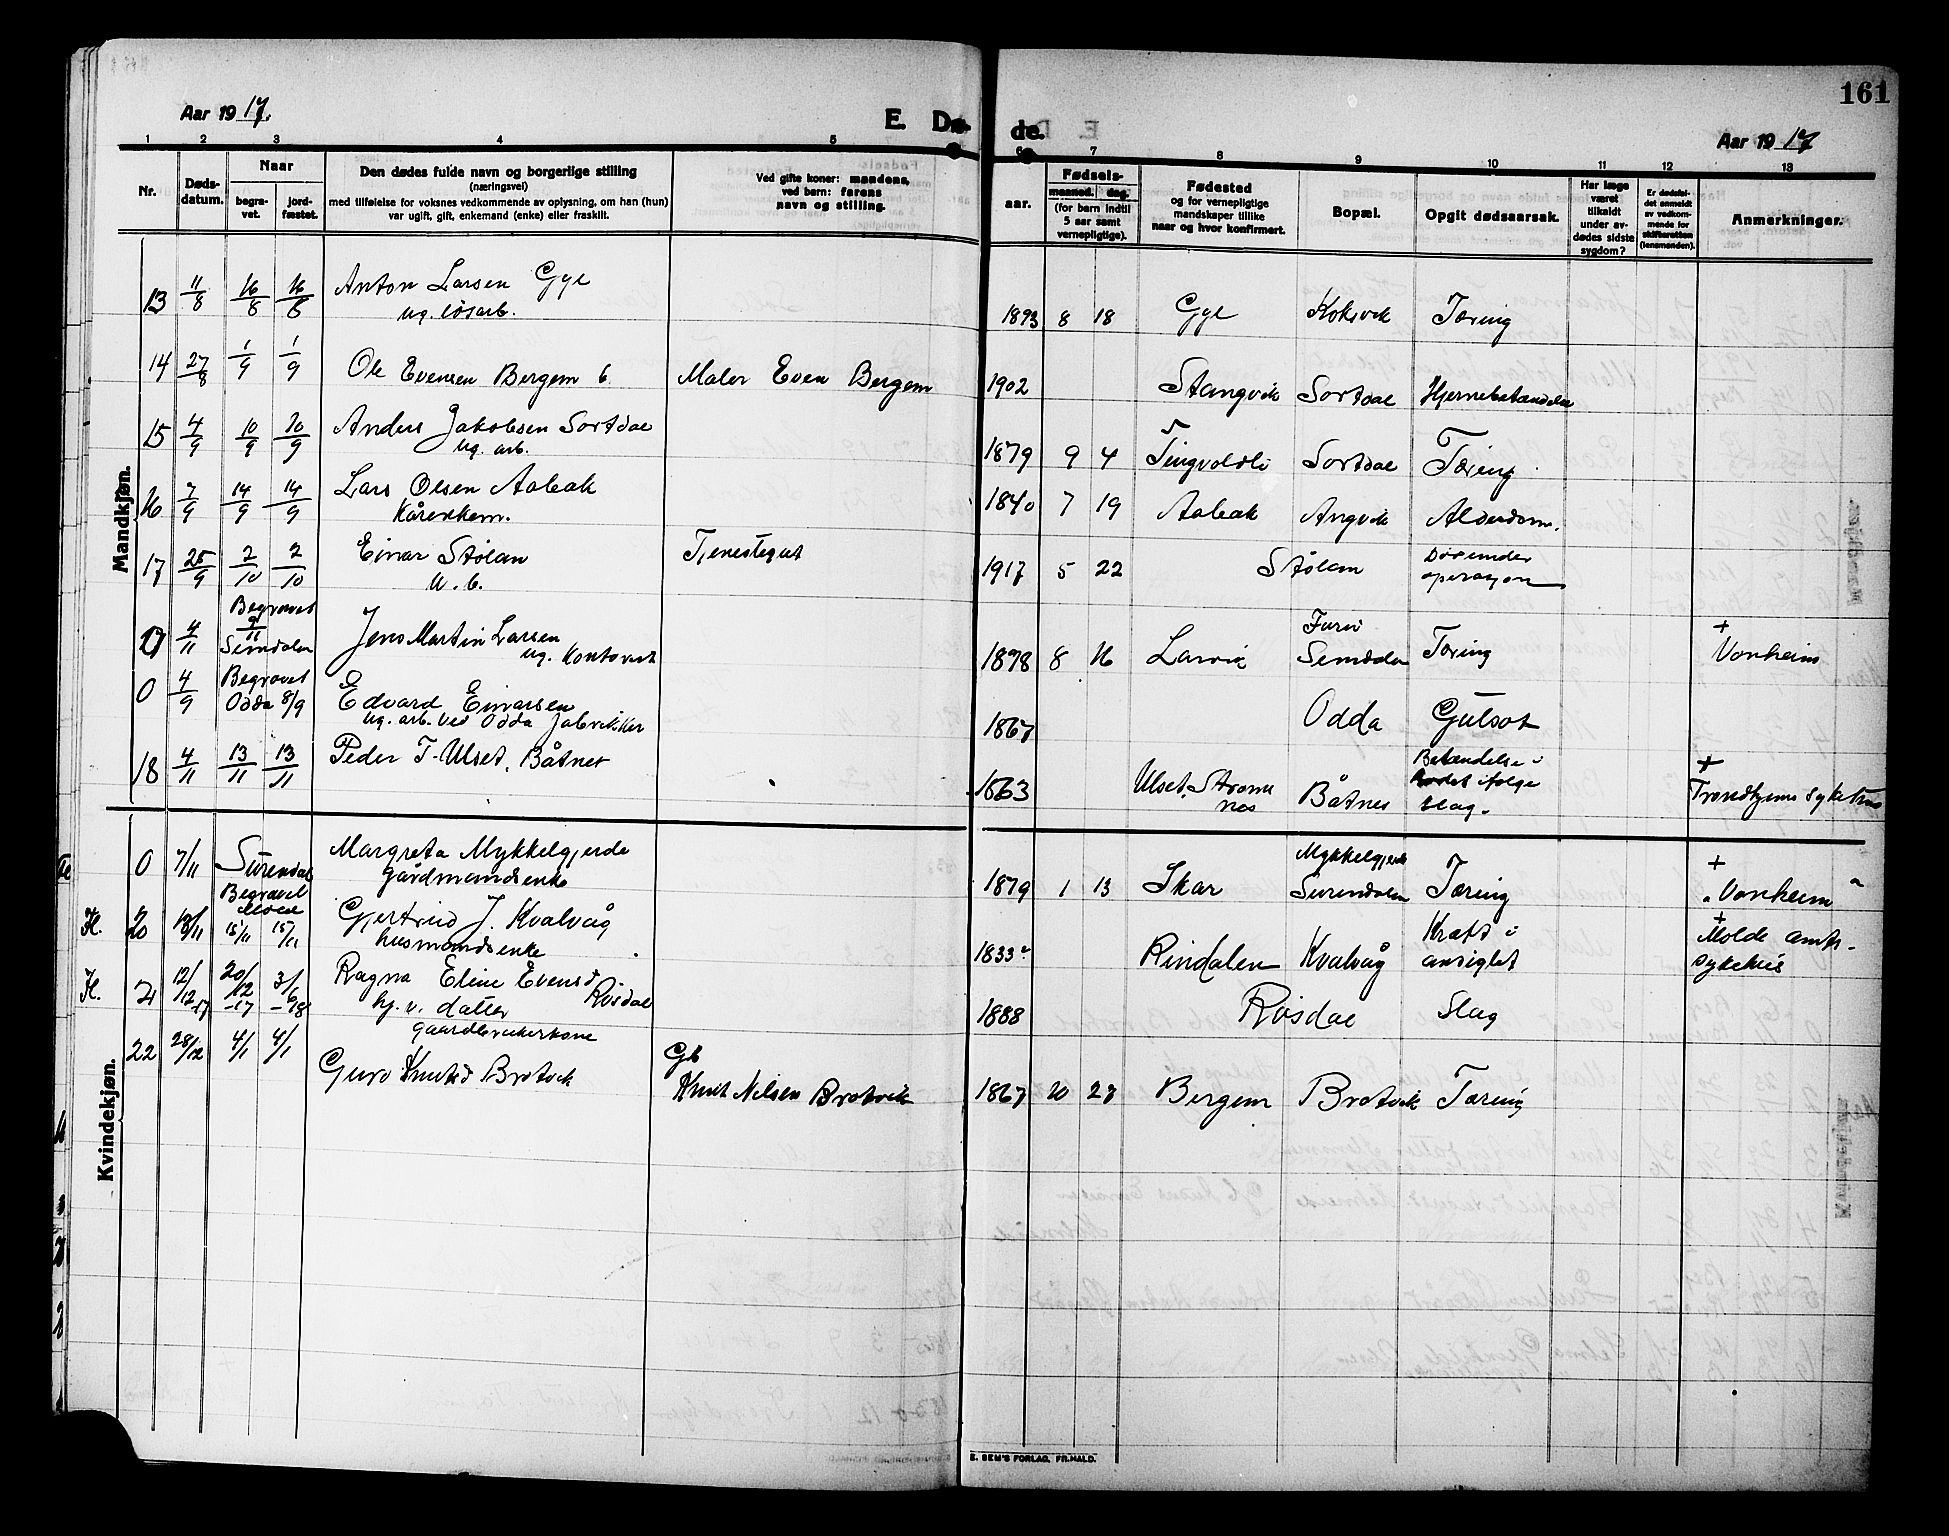 161
Aar 1917.
E. Dø- de.
Aar 1917
1 2 3 4 5 6 7 8 9 10 11 12 13
Nr.
Døds-
datum.
Naar
begra-
vet.
jord-
fæstet.
Den dødes fulde navn og borgerlige stilling
(næringsvei)
med tilføielse for voksnes vedkommende av oplysning, om han (hun)
var ugift, gift, enkemand (enke) eller fraskilt.
Ved gifte koner: mandens,
ved børn: farens
navn og stilling.
Fødsels-
aar.
maaned. dag.
(for børn indtil
5 aar samt
vernepligtige).
Fødested
og for vernepligtige
mandskaper tillike
naar og hvor konfirmert.
Bopæl.
Opgit dødsaarsak.
Har læge
været
tilkaldt
under av-
dødes sidste
sygdom?
Er dødsfal-
det anmeldt
av vedkom-
mende for
skifteretten
(lensmanden).
Anmerkninger.
Mandkjøn.
13 11/8 16/8 16/8 Anton Larsen Gyl
ug. løsarb.
1893 8 18 Gyl Koksvik Tæring
14 27/8 1/9 1/9 Ole Evensen Bergem b. Maler Even Bergem
1902 Stangvik Sortdal Hjernebetændelse
15 4/9 10/9 10/9 Anders Jakobsen Sortdal
ug. arb.
1879 9 4 Tingvoldli Sortdal Tæring
16 7/9 14/9 14/9 Lars Olsen Aabak
Kårenkem.
1840 7 19 Aabak Angvik Alderdom.
17 25/9 2/10 2/10 Einar Stølan Tjenestegut
u. b.
1917 5 22 Stølan Døe under
operasjon
4/11 Begravet
9/11
Semdalen
Jens Martin Larsen
ug. Kontorist
1898 8 16 Larvik Furu
Semdalen Tæring + Vonheim
0 4/9 Begravet
Odda 8/9
Edvard Einarsen
ug. arb. ved Odda fabrikker
1867 Odda Gulsot
18 4/11 13/11 13/11 Peder T. Ulset, Båtnes
1863 Ulset, Straum
nes Båtnes Betændelse i
hodet ifølge
slag. + Trondhjems sykehus
Kvindekjøn.
0 7/11 Surendal Margreta Mykkelgjerde
gårdmandsenke
1879 1 13 Skar Mykkelgjerde
Surendalen Tæring + "Vonheim"
H. 20 13/11 Begravet
Molde
15/11 15/11
Gjertrud J. Kvalvåg
husmandsenke
1833 Rindalen Kvalvåg Kræft i
ansigtet + Molde amts-
sykehus
H. 21 12/12-17 20/12-17 3/6-18 Ragna Eline Evensd
Røsdal
hj. v. datter
1888 Røsdal Slag
22 28/12 4/1 4/1 gaardbrukerkone
Guro Knutsd Brotvik
Gb
Knut Nilsen Brotvik
1867 10 27 Bergem Brotvik Tæring
E. SEM'S FORLAG, FR.HALD.